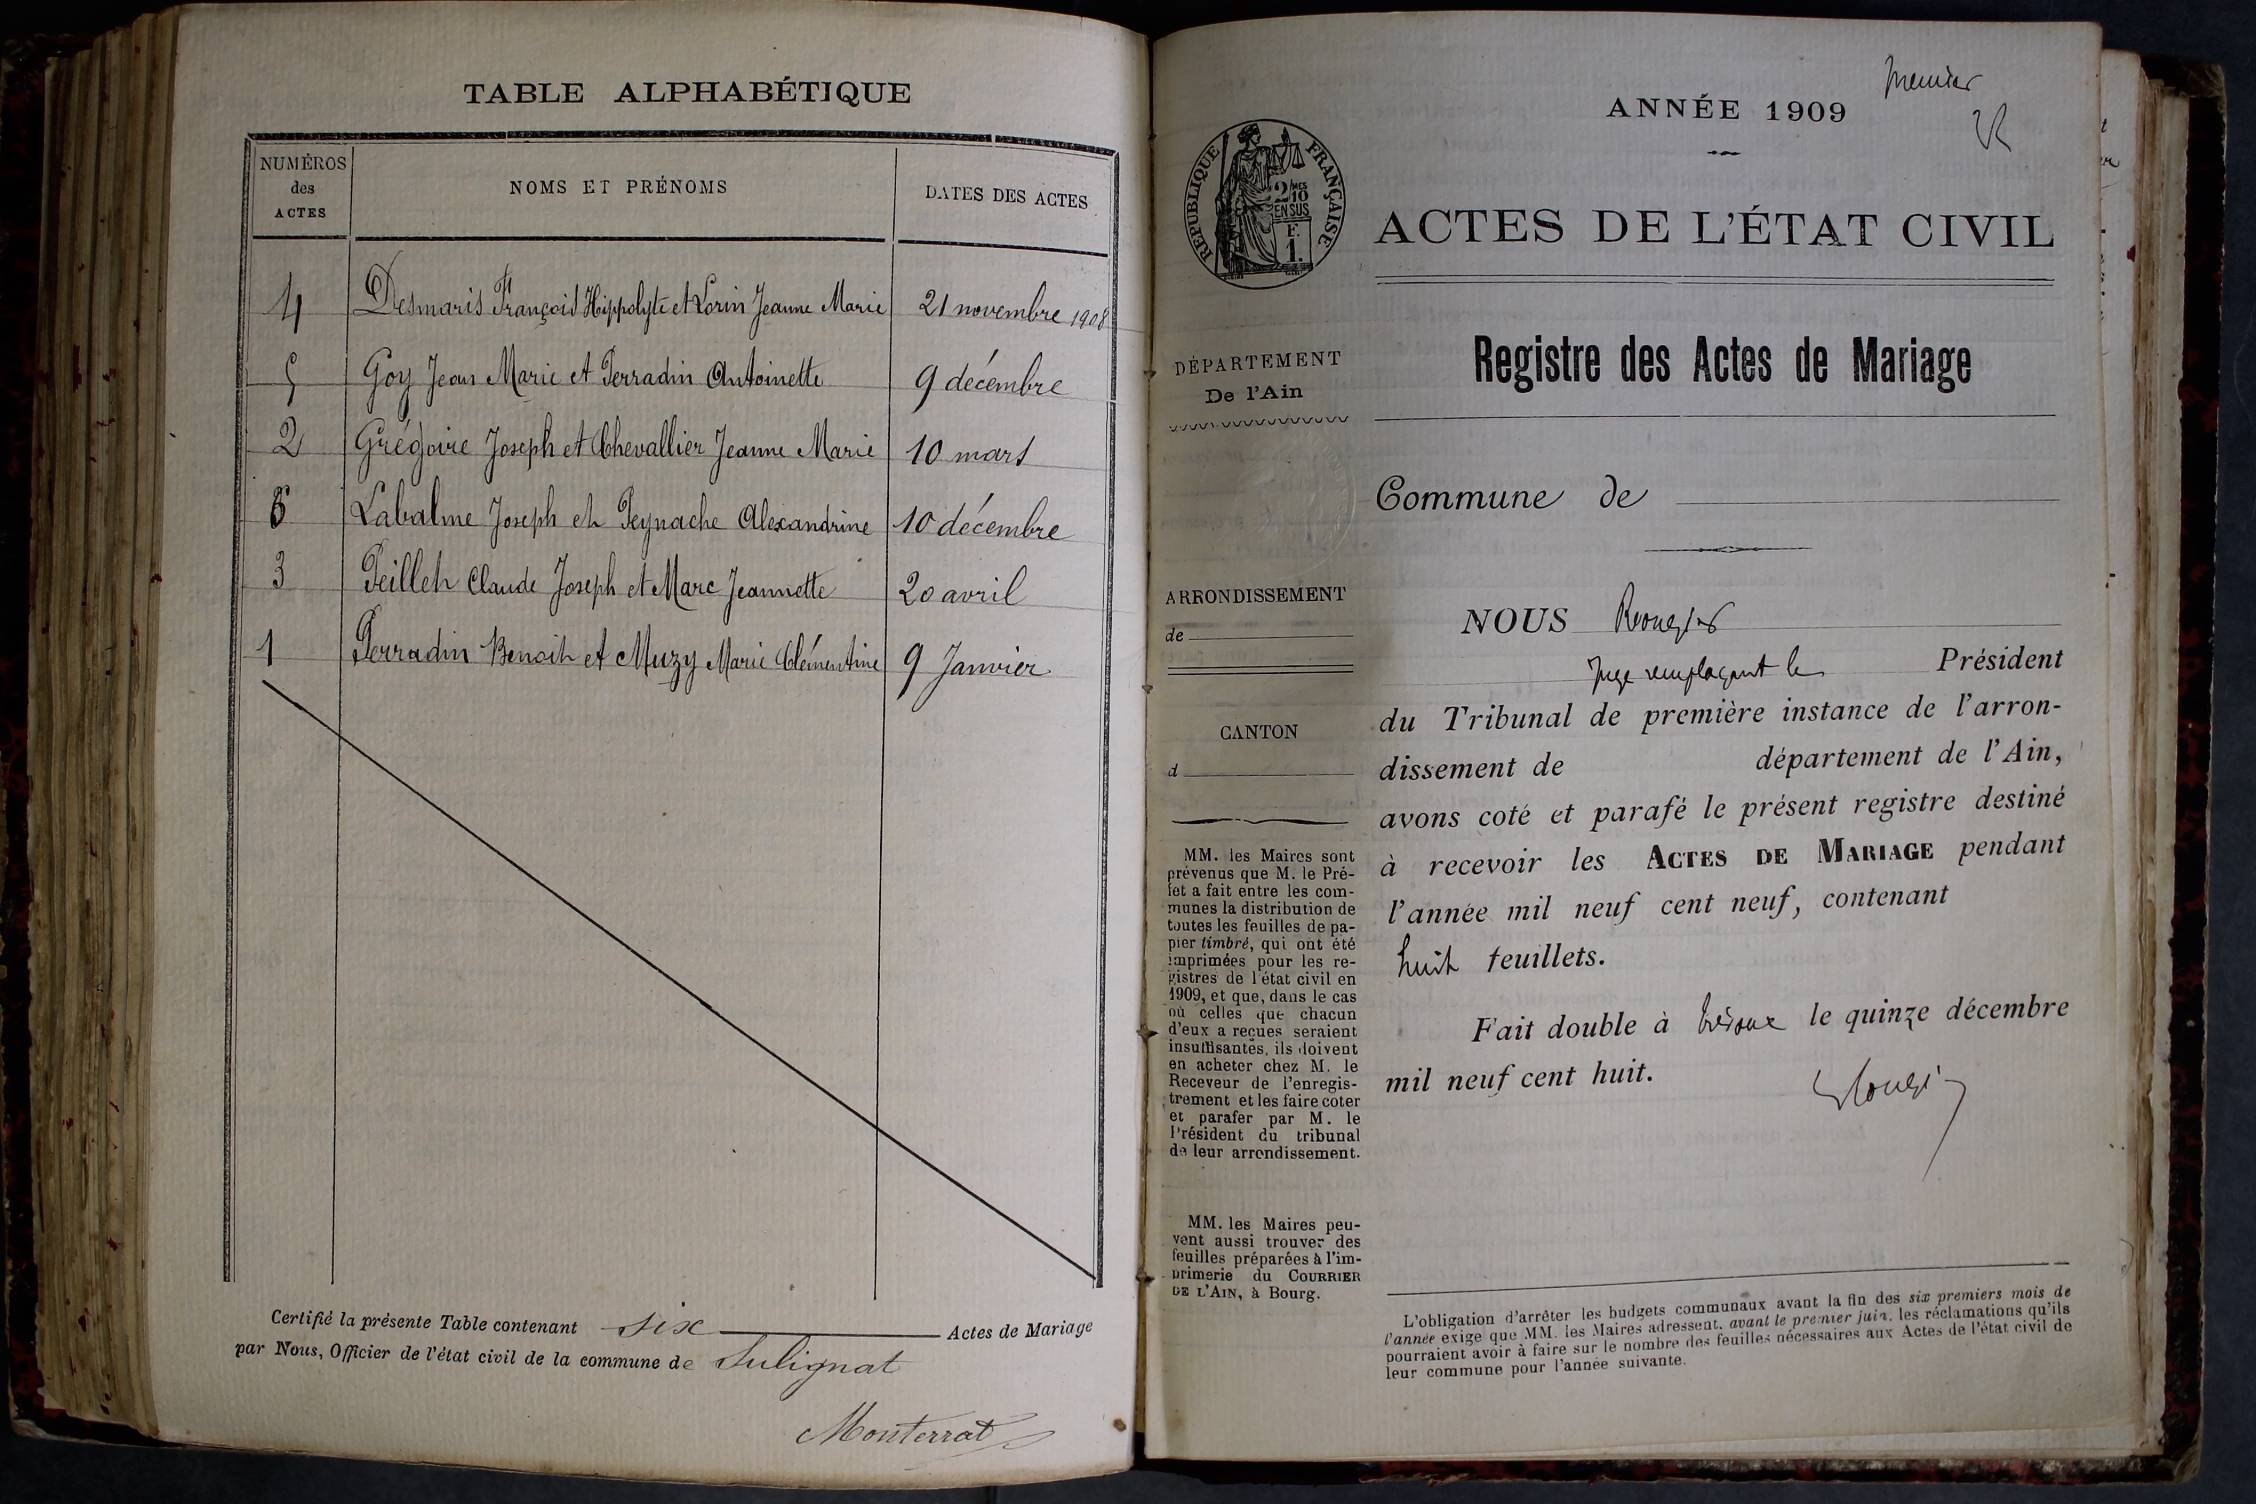 TABLE ALPHABÉTIQUE
NUMÉROS des ACTES
NOMS ET PRÉNOMS
DATES DES ACTES
4 Desmaris François Hippolyte et Lorin Jeanne Marie 21 novembre 1908
5 Goy Jean Marie et Perradin Antoinette 9 décembre
2 Grégoire Joseph et Chevallier Jeanne Marie 10 mars
6 Labalme Joseph et Peynache Alexandrine 10 décembre
3 Peillet Claude Joseph et Marc Jeannette 20 avril
1 Perradin Benoit et Muzy Marie Clémentine 9 Janvier
Certifié la présente Table contenant six Actes de Mariage
par Nous, Officier de l'état civil de la commune de Sulignat
Monterrat
premier
ANNÉE 1909
RÉPUBLIQUE FRANÇAISE
2/10
MES
EN SUS
F.
1.
ACTES DE L'ÉTAT CIVIL
Registre des Actes de Mariage
DÉPARTEMENT
De l'Ain
Commune de
ARRONDISSEMENT
de
CANTON
d
NOUS
Juge remplaçant le Président
du Tribunal de première instance de l'arron-
dissement de département de l'Ain,
avons coté et parafé le présent registre destiné
à recevoir les ACTES DE MARIAGE pendant
l'année mil neuf cent neuf, contenant
huit feuillets.
Fait double à Trévoux le quinze décembre
mil neuf cent huit.
MM. les Maires sont
prévenus que M. le Pré-
fet a fait entre les com-
munes la distribution de
toutes les feuilles de pa-
pier timbré, qui ont été
imprimées pour les re-
gistres de l'état civil en
1909, et que, dans le cas
où celles que chacun
d'eux a reçues seraient
insuffisantes, ils doivent
en acheter chez M. le
Receveur de l'enregis-
trement et les faire coter
et parafer par M. le
Président du tribunal
de leur arrondissement.
MM. les Maires peu-
vent aussi trouver des
feuilles préparées à l'im-
primerie du COURRIER
DE L'AIN, à Bourg.
L'obligation d'arrêter les budgets communaux avant la fin des six premiers mois de
l'année exige que MM. les Maires adressent, avant le premier juin, les réclamations qu'ils
pourraient avoir à faire sur le nombre des feuilles nécessaires aux Actes de l'état civil de
leur commune pour l'année suivante.